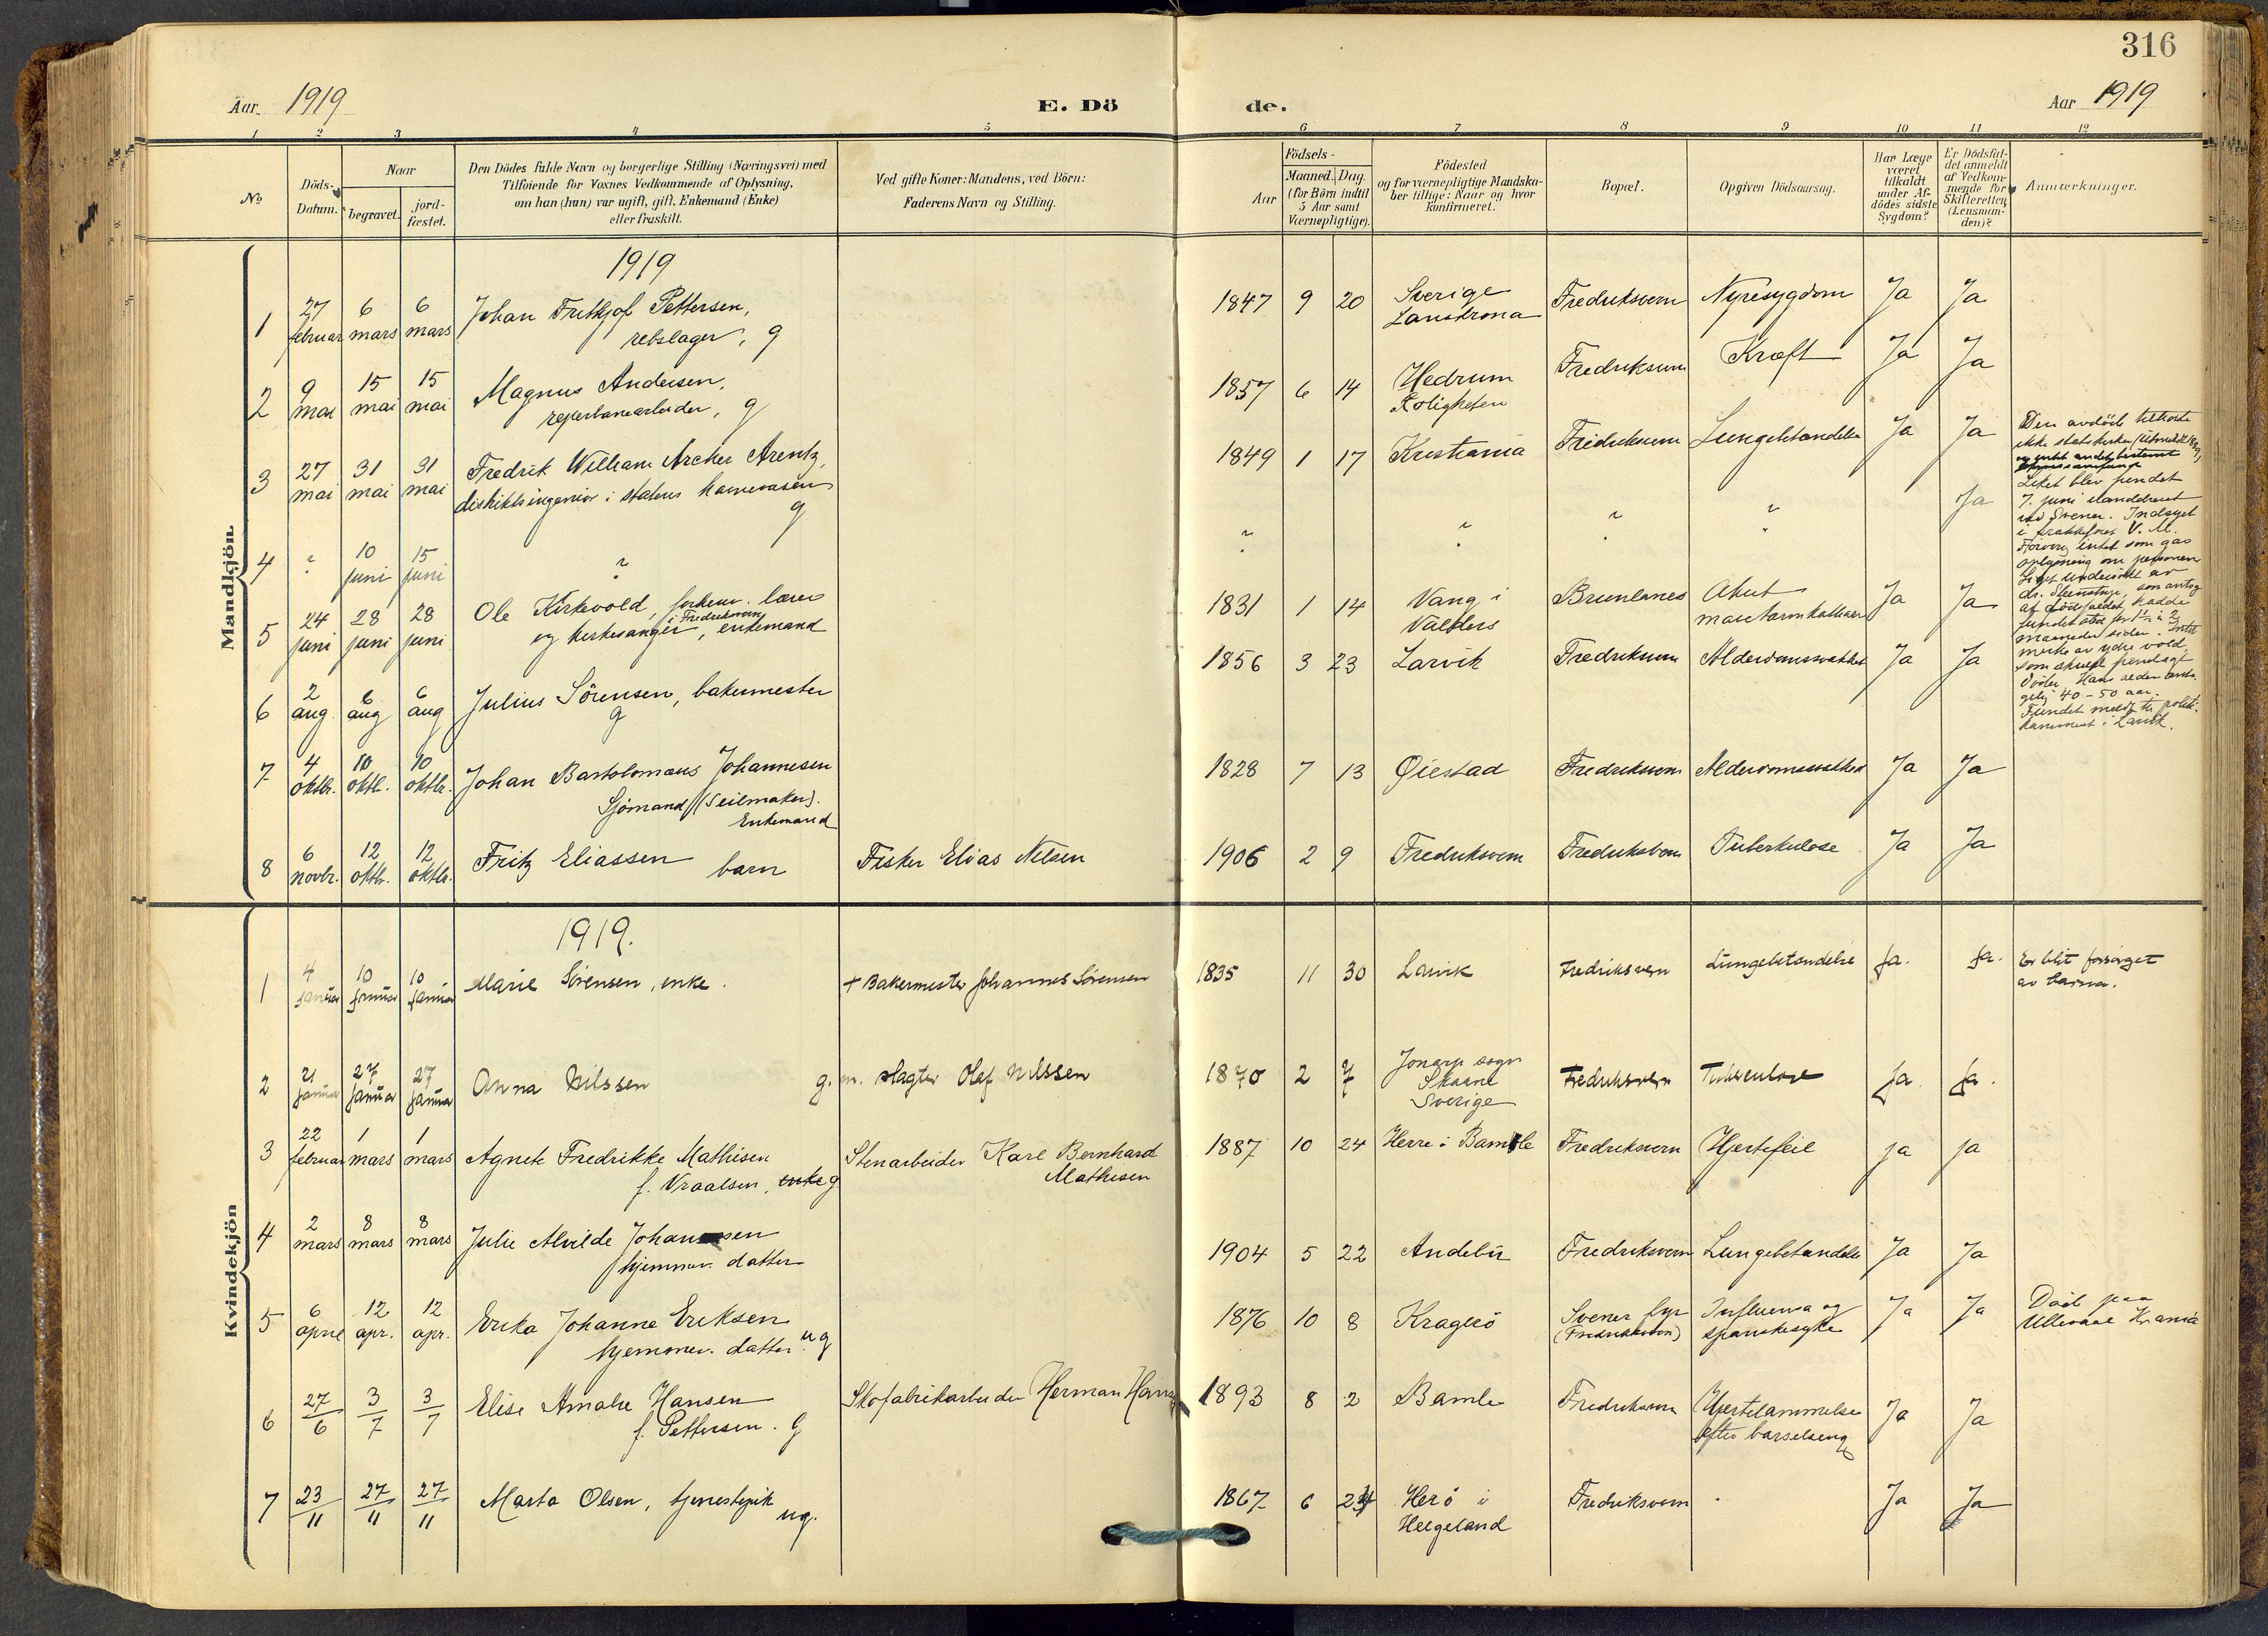 316
Aar 1919 E. Dö de. Aar 1919
1 2 3 4 5 6 7 8 9 10 11 12
No
Döds-Datum.
Naar
begravet.
jord-fæstet.
Den Dödes fulde Navn og borgerlige Stilling (Næringsvei) med
Tilföiende for Voxnes Vedkommende af Oplysning,
om han (hun) var ugift, gift, Enkemand (Enke)
eller fraskilt.
Ved gifte Koner: Mandens, ved Börn:
Faderens Navn og Stilling.
Födsels-
Aar
Maaned. Dag.
(for Börn indtil
5 Aar samt
Værnepligtige).
Födested
og for værnepligtige Mandska-
ber tillige: Naar og hvor
konfirmeret.
Bopæl.
Opgiven Dödsaarsag.
Har Læge
været
tilkaldt
under Af-
dödes sidste
Sygdom?
Er Dödsfal-
det anmeldt
af Vedkom-
mende for
Skifteretten
(Lensman-
den)?
Anmærkninger.
Mandkjön.
1919
1 27 februar 6 mars 6 mars Johan Frithjof Pettersen, 1847 9 20 Sverige Fredriksvern Nyresygdom Ja Ja
rebslager, g Lanskrona
2 9 mai 15 mai 15 mai Magnus Andersen, 1857 6 14 Hedrum Fredriksvern Kræft Ja Ja
reperbanearbeider, g Roligheten
3 27 mai 31 mai 31 mai Fredrik William Archer Arentz, 1849 1 17 Kristiania Fredriksvern Lungebetændelse Ja Ja
distriktsingeniør i statens havnevæsen
g
Den avdöde tilhørte
ikke statskirken
4 ? 10 juni 15 juni ? ? ? ? ? Ja
Liket blev fundet
7. juni ilanddrevet
ved Svenør. Indsyet
i frakkeforet V. M.
Forøvrig intet som gav
oplysning om personen
Liket undersøkt av
dr. Steenstrup, som antog
at dödsfaldet hadde
fundet sted for 1½ à 2
maaneder siden. Intet
merke av ydre vold,
Hans alder
40 - 50 aar.
Fundet meldt til politi-
kammeret i Larvik.
5 24 juni 28 juni 28 juni Ole Kirkevold, forhenv. lærer 1831 1 14 Vang i Brunlanes Akut Ja Ja
i Fredriksvern
og kirkesanger, enkemand Valders mavetarmkatharr
6 2 aug. 6 aug 6 aug Julius Sörensen, bakermester 1856 3 23 Larvik Fredriksvern Alderdomssvakhet Ja Ja
g
7 4 oktbr. 10 oktbr. 10 oktbr. Johan Bartolomæus Johannesen 1828 7 13 Øiestad Fredriksvern Alderdomssvakhet Ja Ja
Sjömand (Seilmaker).
Enkemand
8 6 novbr. 12 oktbr. 12 oktbr. Fritz Eliassen barn Fisker Elias Nilsen 1906 2 9 Fredriksvern Fredriksvern Tuberkulose Ja Ja
Kvindekjön
1919.
1 4 januar 10 januar 10 januar Marie Sörensen, enke. + Bakermester Johannes Sörensen 1835 11 30 Larvik Fredriksvern Lungebetændelse Ja. Ja. Er blit forsörget
av barna.
2 21 januar 27 januar 27 januar Anna Nilssen g. m. slagter Olaf Nilssen 1870 2 7 Jonarp sogn Fredriksvern Tuberkulose Ja Ja.
Skaane
Sverige
3 22 februar 1 mars 1 mars Agnete Fredrikke Mathisen Stenarbeider Karl Bernhard 1887 10 24 Herre i Bamble Fredriksvern Hjertefeil ja ja
f. Vraalsen, enke g Mathisen
4 2 mars 8 mars 8 mars Julie Alvilde Johansen 1904 5 22 Andebu Fredriksvern Lungebetændelse Ja Ja
hjemmev. datter
5 6 april 12 apr. 12 apr. Erika Johanne Eriksen 1876 10 8 Kragerö Svenør fyr Influensa og Ja Ja Död paa
hjemmev. datter. ug (Fredriksvern) spanskesyke Ullevaal Kr.ania
6 27/6 3/7 3/7 Elise Amalie Hansen Skofabrikarbeider Herman Hansen 1893 8 2 Bamle Fredriksvern Hjertelammelse Ja Ja
f. Pettersen. g efter barselseng
7 23/11 27/11 27/11 Marta Olsen, tjenestepik 1867 6 24 Herö i Fredriksvern Ja Ja
ug. Helgeland